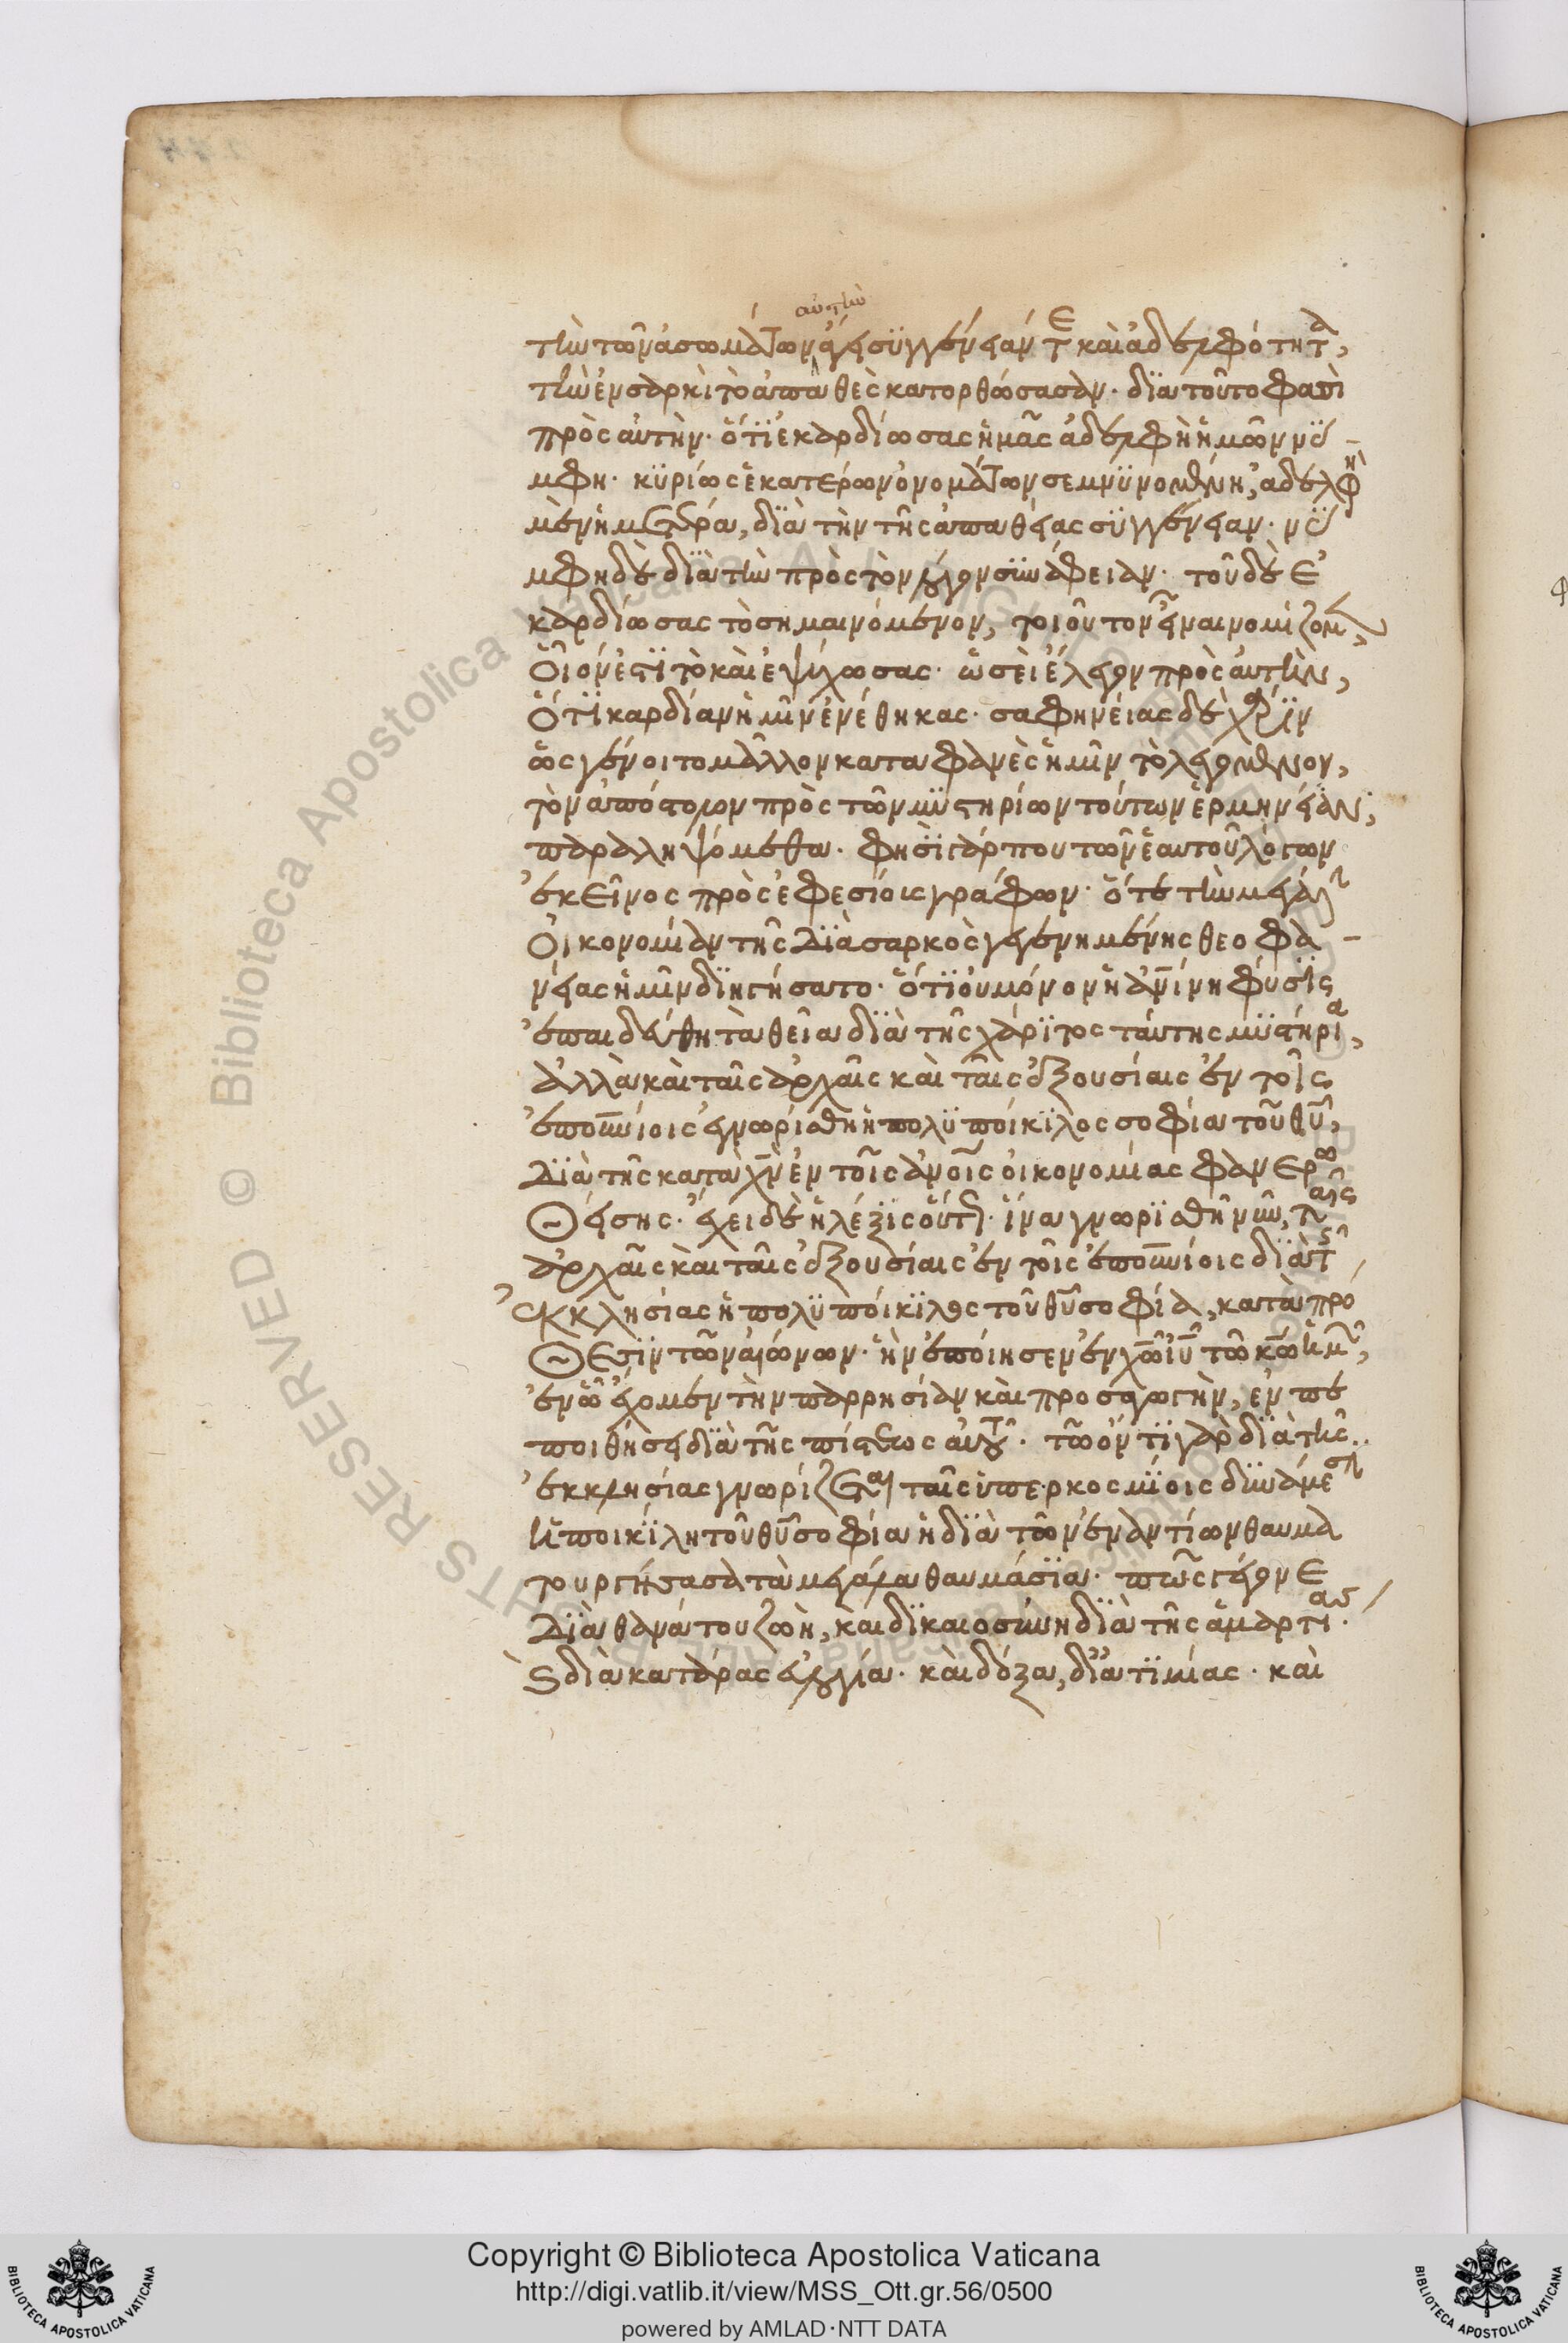 αὐτὴν
τὴν τῶν ἀσωμάτων ἄγει συγγένειάν τε καὶ ἀδελφότητα,
τὴν ἐν σαρκὶ τὸ ἀπαθὲς κατορθώσασαν. διὰ τοῦτο φασὶ
πρὸς αὐτὴν. ὅτι ἐκαρδίωσας ἡμᾶς ἀδελφὴ ἡμῶν νύ-
μφη. κυρίως ἑκατέρων ὀνομάτων σεμνυνομένη, ἀδελφὴ
μὲν ἡμετέρα, διὰ τὴν τῆς ἀπαθείας συγγένειαν. νύ
μφη δὲ διὰ τὴν πρὸς τὸν λόγον συνάφειαν. τοῦ δὲ ἐ
καρδίωσας τὸ σημαινόμενον, τοιοῦτον εἶναι νομίζομεν,
οἷον ἐστι τὸ καὶ ἐψύχωσας. ὡσεὶ ἔλεγον πρὸς αὐτὴν,
ὅτι καρδίαν ἡμῖν ἐνέθηκας. σαφηνείας δὲ χάριν
ὡς γένοιτο μᾶλλον καταφανὲς ἡμῖν τὸ λεγόμενον,
τὸν ἀπόστολον πρὸς τῶν μυστηρίων τούτων ἑρμηνείαν,
παραληψόμεθα. φησὶ γάρ που τῶν ἑαυτοῦ λόγων
ἐκεῖνος πρὸς ἐφεσίοις γράφων. ὅτε τὴν μεγάλην
οἰκονομίαν τῆς διὰ σαρκὸς γεγενημένης θεοφα-
νείας ἡμῖν διηγήσατο. ὅτι οὐ μόνον ἡ ἀνίνη φύσις
ἐπαιδεύθη τὰ θεῖα διὰ τῆς χάριτος ταύτης μυστήρια,
ἀλλὰ καὶ ταῖς ἀρχαῖς καὶ ταῖς ἐξουσίαις ἐν τοῖς
ἐπουνίοις ἐγνωρίσθη ἡ πολυποίκιλος σοφία τοῦ θυ,
διὰ τῆς κατὰ χν ἐν τοῖς ἀνοις οἰκονομίας φανερω
θείσης. ἔχει δὲ ἡ λέξις οὕτως. ἵνα γνωρισθῆ νῦν, ταῖς
ἀρχαῖς καὶ ταῖς ἐξουσίαις ἐν τοῖς ἐπουνίοις διὰ τῆς
ἐκκλησίας ἡ πολυποίκιλος τοῦ θυ σοφία, κατὰ πρό
θεσιν τῶν αἰώνων. ἣν ἐποίησεν ἐν χω ιυ τῶ κω ἡμῶν,
ἐν ὧ ἔχομεν τὴν παρρησίαν καὶ προσαγωγὴν, ἐν πε
ποιθήσει διὰ τῆς πίστεως αὐτοῦ. τῶ ὄντι γὰρ διὰ τῆς
ἐκκλησίας γνωρίζεται ταῖς ὑπερκοσμίοις δυνάμεσιν
ἡ ποικίλη τοῦ θυ σοφία ἡ διὰ τῶν ἐναντίων θαυμα
τουργήσασα τὰ μεγάλα θαυμάσια. πῶς γέγονε
διὰ θανάτου ζωὴ, καὶ δικαιοσύνη διὰ τῆς ἁμαρτίας.
καὶ διὰ κατάρας εὐλογία. καὶ δόξα, δι' ἀτιμίας. καὶ
Copyright © Biblioteca Apostolica Vaticana
http://digi.vatlib.it/view/MSS_Ott.gr.56/0500
powered by AMLAD·NTT DATA